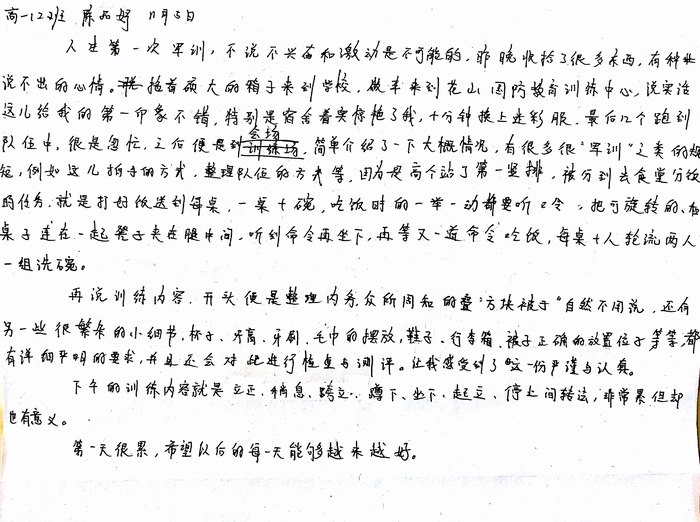 高一12班 陈品好 11月5日
人生第一次军训，不说不兴奋和激动是不可能的，昨晚收拾了很多东西，有种
说不出的心情。拖着硕大的箱子来到学校，坐车来到花山国防教育训练中心，说实话
这儿给我的第一印象不错，特别是宿舍着实惊艳了我，十分钟换上迷彩服，最后几个跑到
队伍中，很是匆忙，之后便是到会场，简单介绍了一下大概情况，有很多很"军训"之类的
，例如这儿拍手的方式，整理队伍的方式等，因为是高个站了第一竖排，被分到去食堂分饭
的任务，就是打好饭送到每桌，一桌十碗，吃饭时的一举一动都要听口令，把可旋转的
桌子连在一起凳子夹在腿中间，听到命令再坐下，再等又一道命令吃饭，每桌十人轮流两人
一组洗碗。
再说训练内容，开头便是整理内务，众所周知的叠"方块被子"自然不用说，还有
另一些很繁杂的小细节，杯子、牙膏、牙刷、毛巾的摆放，鞋子、行李箱、被子正确的放置位子等等，都
有详细严明的要求，并且还会对此进行检查与测评。让我感受到了这一份严谨与认真。
下午的训练内容就是立正、稍息、跨立、蹲下、坐下、起立、停止间转法，非常累但却
也有意义。
第一天很累，希望以后的每一天能够越来越好。